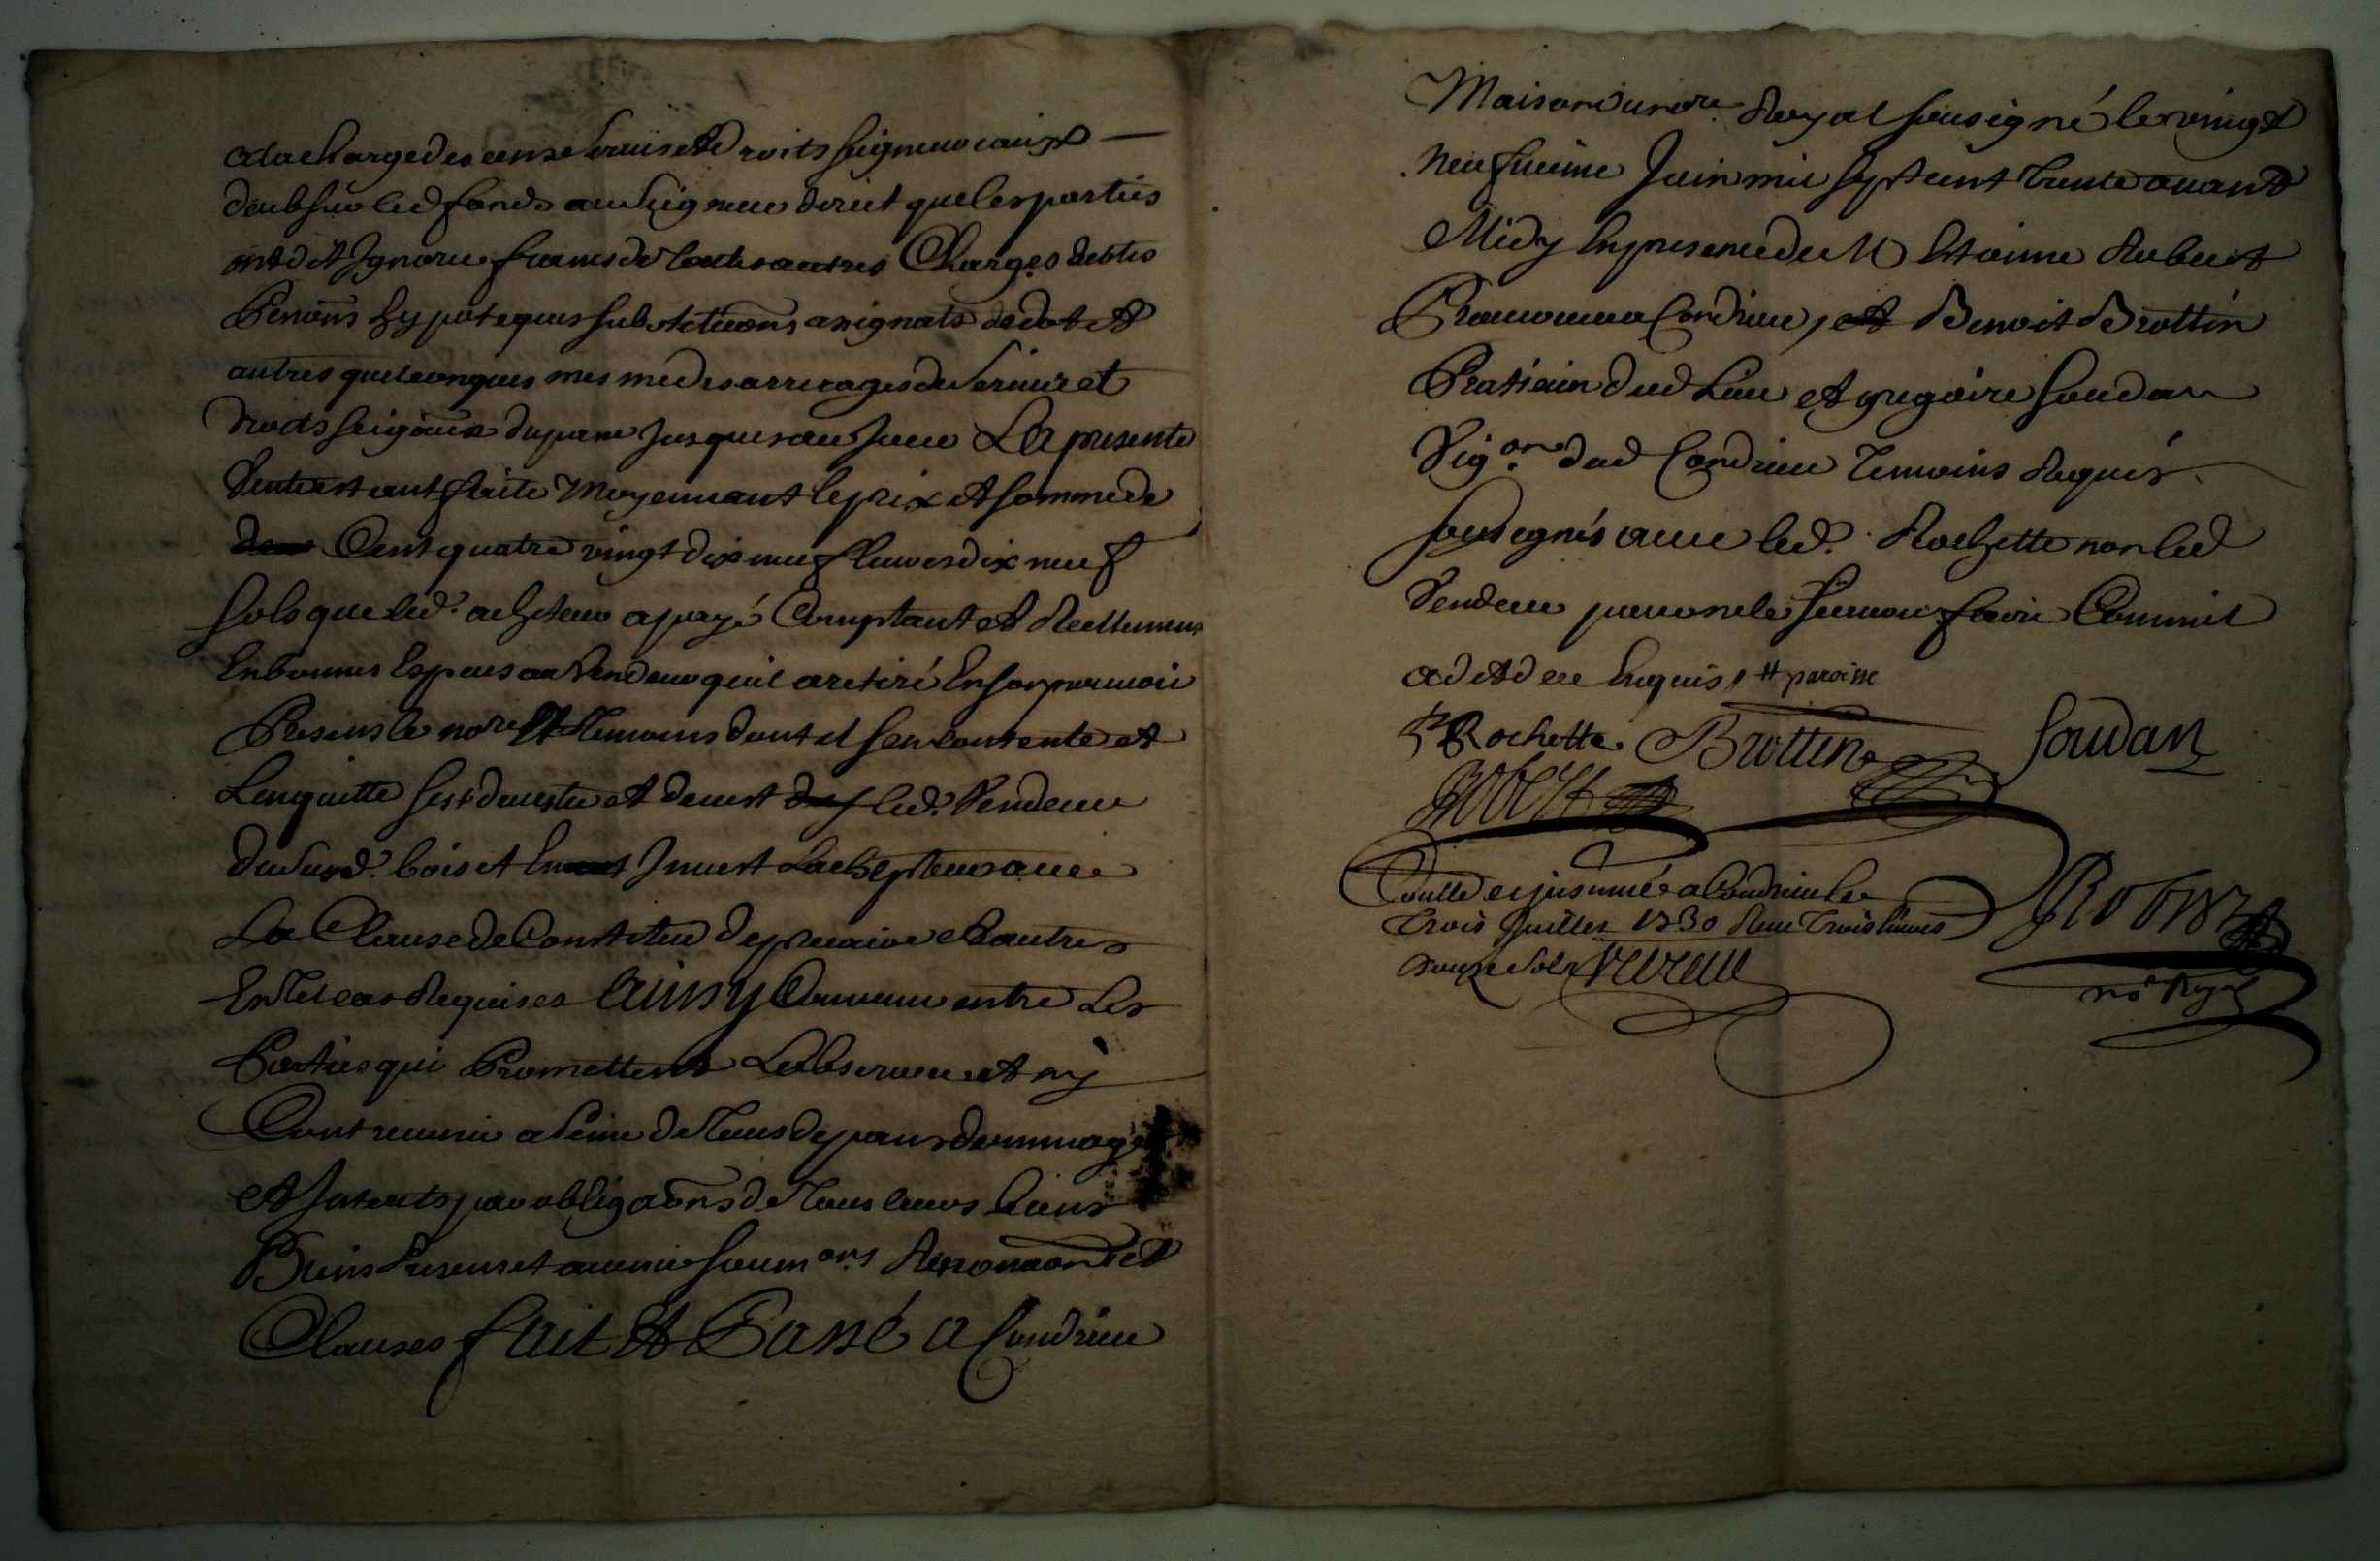 a la charge des cens servis et droits seigneuriaux
deub sur led fonds au seigneur direct que les parties
ont dit ignorer francs de toutes autres Charges debtes
Penõns hypoteques substitucõns asignats de dot et
autres quelconques mesme des arrerages de servis et
droits seigãux du passé jusques au jour La presente
Vente estant faite moyennant le prix et somme de
Cent quatre vingt dix neuf livres dix neuf
sols que led. acheteur a payé Comptant et Reellement
En bonnes Especes au Vendeur quil a retiré En son pouvoir
Presens le nore Et temoins dont il sen contente et
Len quitte sest devestu et devest led. Vendeur
du susd. bois et En Invest Lachepteur avec
La Clause de Constitut de precaire et autres
En tel cas Requises ainsy Convenu entre Les
Parties qui Promettent Lobserver et ny
Contrevenir a Peine de tous depans dommages
et Interests par obligaõns de tous leurs biens
Biens Presens et avenir soum ons Renonaõns et
Clauses fait Et Passé a Condrieu
Maison du nore. Royal sousigné le vingt
neufvieme Juin mil sept cent trente avant
Midy En presence de M Estaime Rubert
Condrieu, et Benoit Brottin
Praticien dud Lieu et gregoire soudan
Vig on. dud Condrieu Temoins Requis
sousignés avec led. Rochette non led
Vendeur pour ne le scavoir faire Comme il
a dit de ce Enquis # paroisse
Rochette Brottin soudan
Robert
Conllé et jnsinué a Condrieu le
trois Juillet 1730 Reçu trois livres
douze sols
Robert
nõ Royal